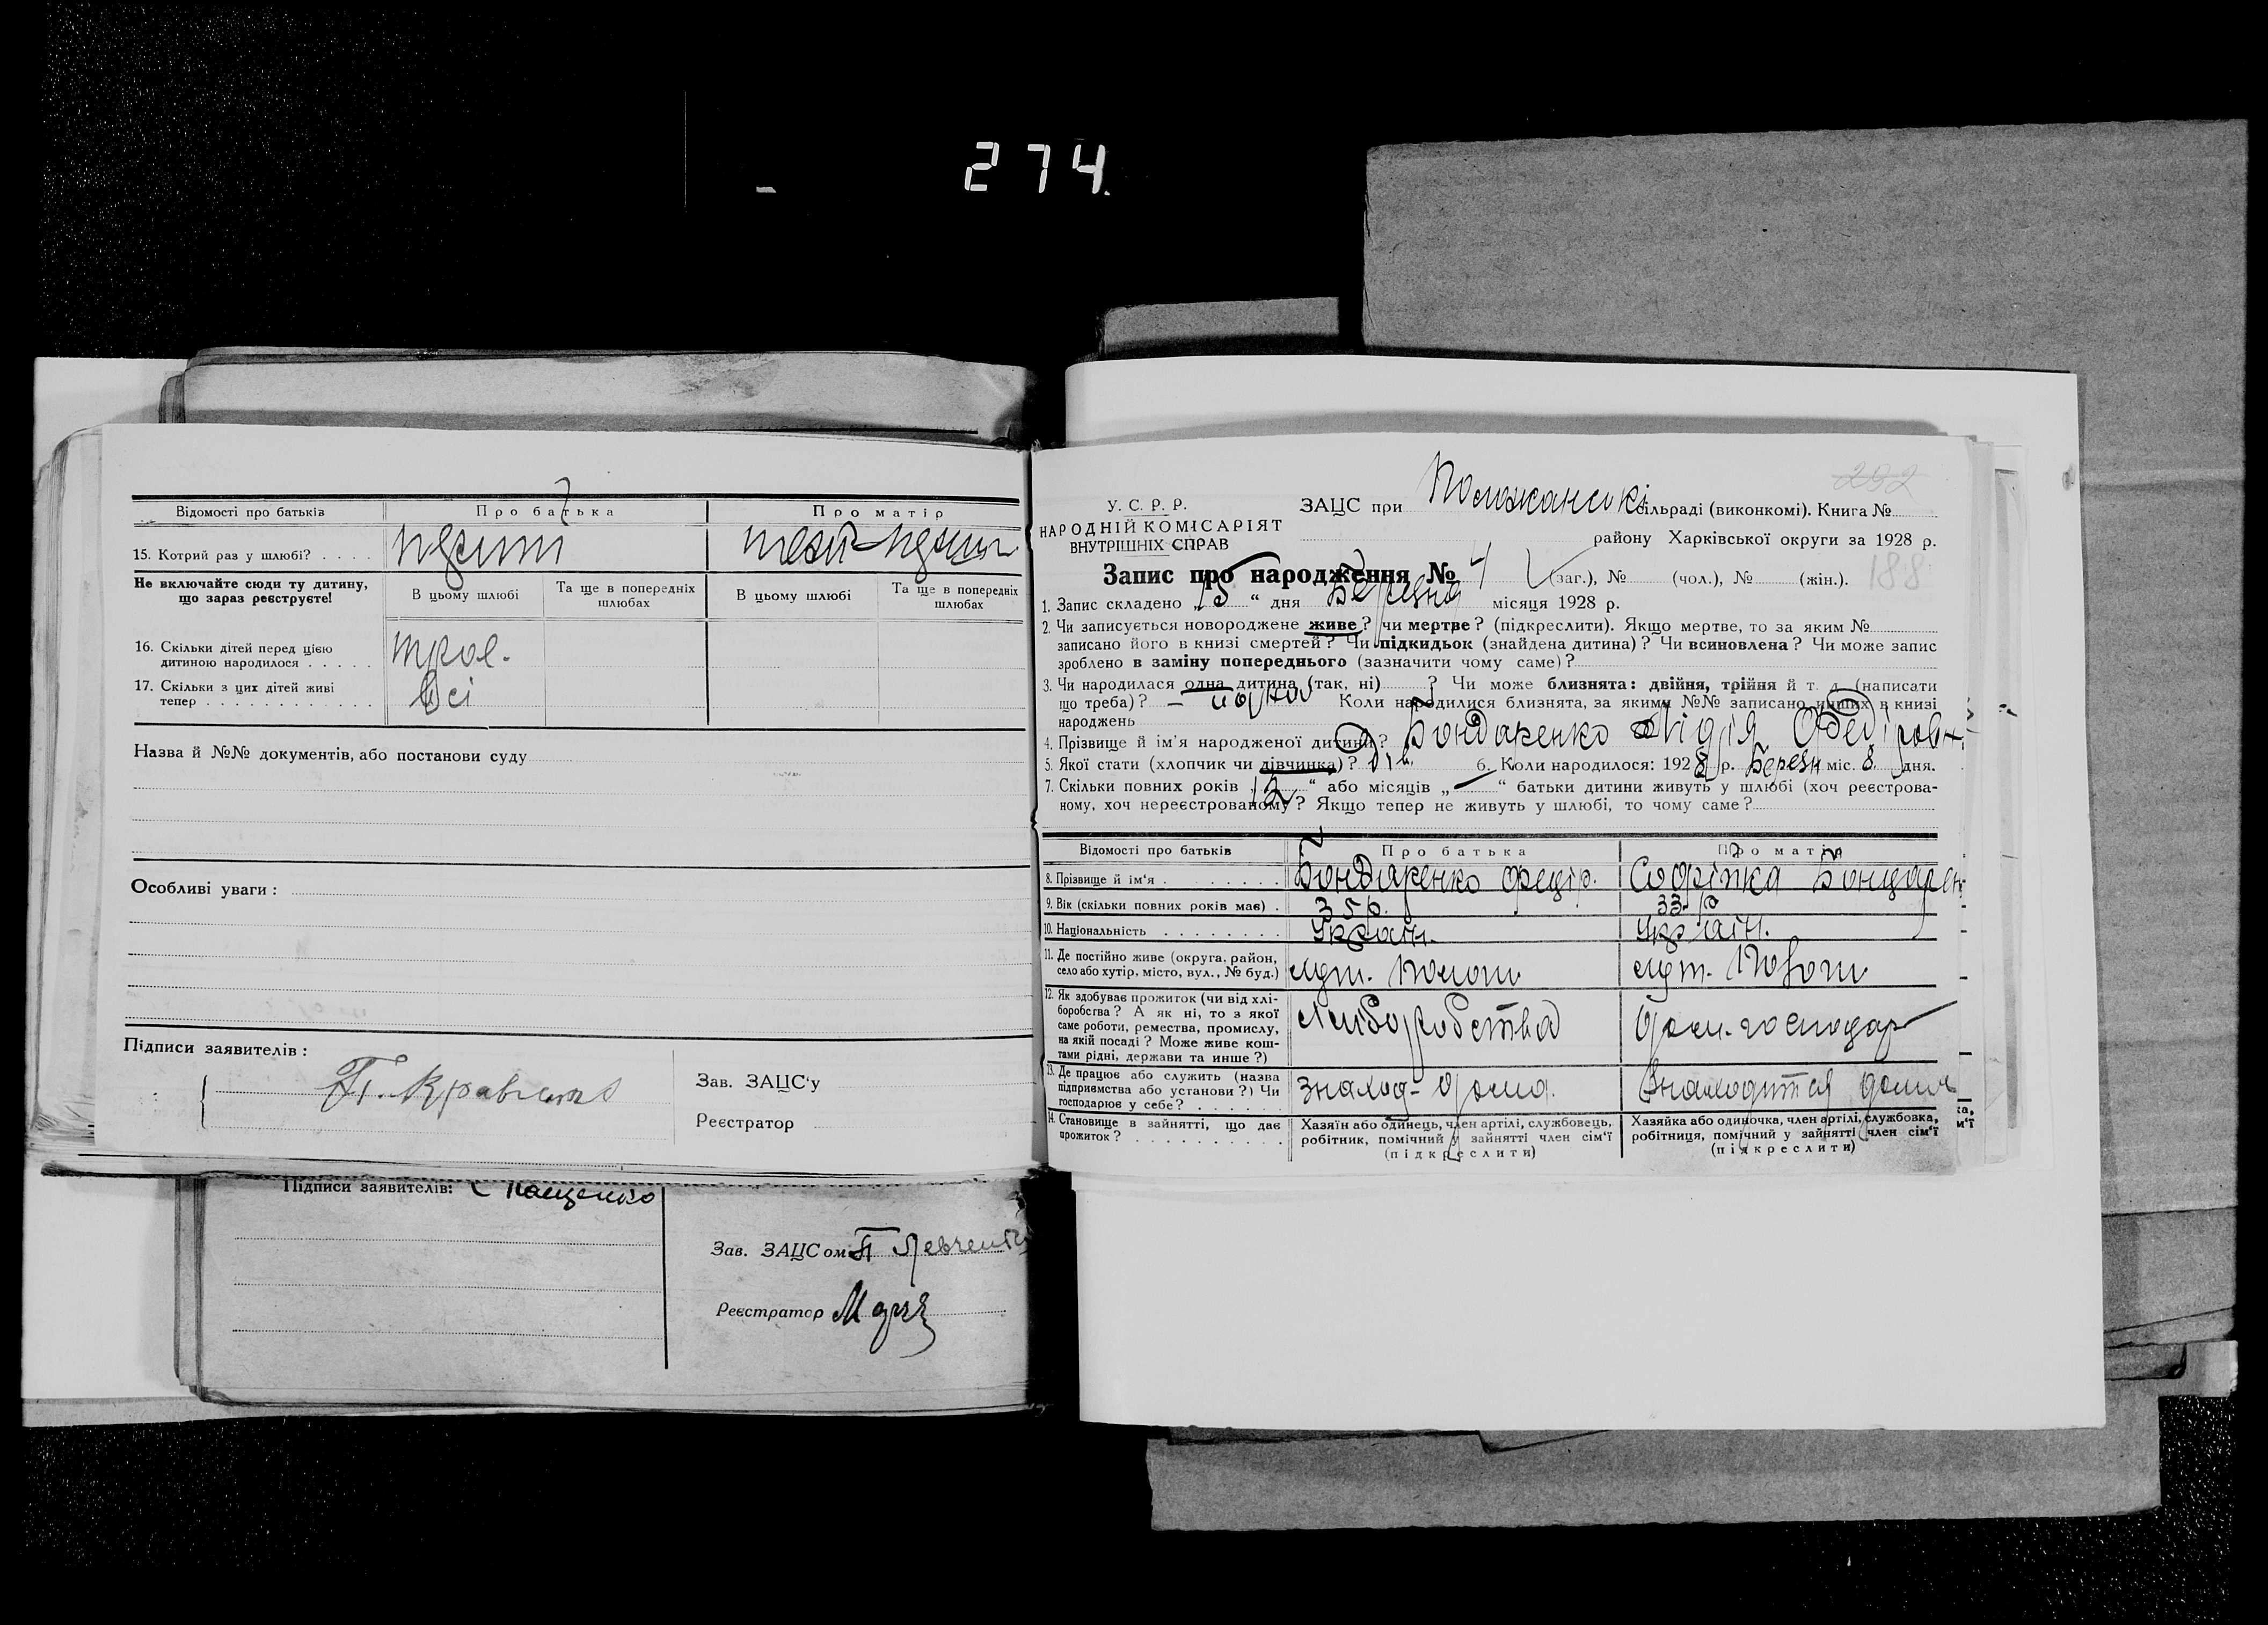 274.
Відомості про батьків Про батька Про матір
15. Котрий раз у шлюбі? . . . .
Не включайте сюди ту дитину, що зараз реєструєте!
В цьому шлюбі Та ще в попередніх шлюбах В цьому шлюбі Та ще в попередніх шлюбах
16. Скільки дітей перед цією
дитиною народилося . . . . . троє.
17. Скільки з цих дітей живі
тепер . . . . . . . . . . . . Всі
Назва й №№ документів, або постанови суду
Особливі уваги :
Підписи заявителів :
Зав. ЗАЦС'у
Реєстратор
Підписи заявителів: Пащенко
Зав. ЗАЦСом П Левченко
Реєстратор
292
У. С. Р. Р.
НАРОДНІЙ КОМІСАРІЯТ
ВНУТРІШНІХ СПРАВ
ЗАЦС при сільраді (виконкомі). Книга №
району Харківської округи за 1928 р.
Запис про народження № 4 (заг.), № (чол.), № (жін.). 188
1. Запис складено „15“ дня Березня місяця 1928 р.
2. Чи записується новороджене живе? чи мертве? (підкреслити). Якщо мертве, то за яким №
записано його в книзі смертей? Чи підкидьок (знайдена дитина)? Чи всиновлена? Чи може запис
зроблено в заміну попереднього (зазначити чому саме)?
3. Чи народилася одна дитина (так, ні) ? Чи може близнята: двійня, трійня й т. д. (написати
що треба)? Коли народилися близнята, за якими №№ записано инших в книзі
народжень
4. Прізвище й ім'я народженої дитини? Бондаренко Лідія
5. Якої стати (хлопчик чи дівчинка)? дів. 6. Коли народилося: 1928 р. Березн міс. 8 дня.
7. Скільки повних років „12“ або місяців „—“ батьки дитини живуть у шлюбі (хоч реєстрова-
ному, хоч нереєстрованому? Якщо тепер не живуть у шлюбі, то чому саме?
Відомості про батьків Про батька Про матір
8. Прізвище й ім'я . . . . . . . . Бондаренко Федір.
9. Вік (скільки повних років має) . 35 р. 33 р
10. Національність . . . . . . . . Україн. Україн.
11. Де постійно живе (округа, район,
село або хутір, місто, вул., № буд.)
12. Як здобуває прожиток (чи від хлі-
боробства? А як ні, то з якої
саме роботи, ремества, промислу,
на якій посаді? Може живе кош-
тами рідні, держави та инше?)
Хліборобства
13. Де працює або служить (назва
підприємства або установи?) Чи
господарює у себе? . . . . . .
Знаходится дома
14. Становище в зайнятті, що дає
прожиток? . . . . . . . . . .
Хазяїн або одинець, член артілі, службовець,
робітник, помічний у зайнятті член сім'ї
(підкреслити)
Хазяйка або одиночка, член артілі, службовка,
робітниця, помічний у зайнятті член сім'ї
(підкреслити)